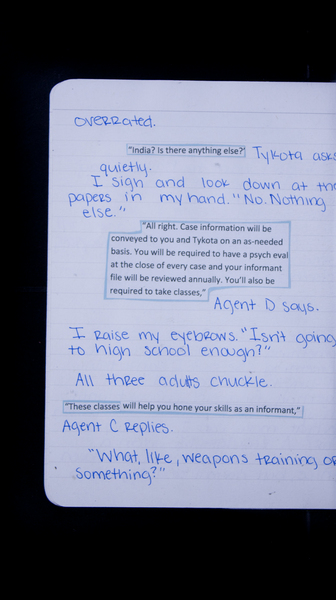 overrated.
"India? Is there anything else?" Tykota asks
quietly.
I sigh and look down at the
papers in my hand. "No. Nothing
else."
"All right. Case information will be
conveyed to you and Tykota on an as-needed
basis. You will be required to have a psych eval
at the close of every case and your informant
file will be reviewed annually. You'll also be
required to take classes,"
Agent D says.
I raise my eyebrows. "Isn't going
to high school enough?"
All three adults chuckle.
"These classes will help you hone your skills as an informant,"
Agent C replies.
"What, like, weapons training or
something?"